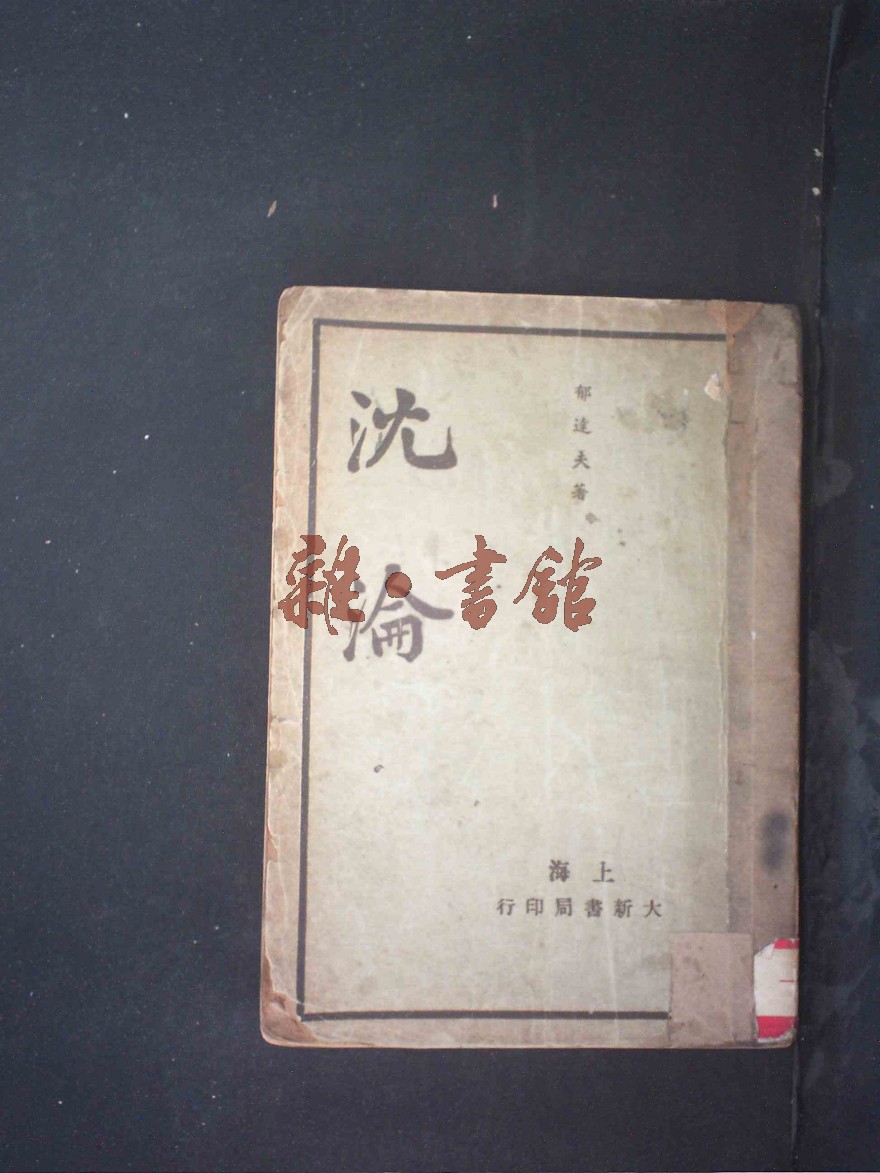 郁達夫著
沈淪
雜·書館
上海
大新書局印行